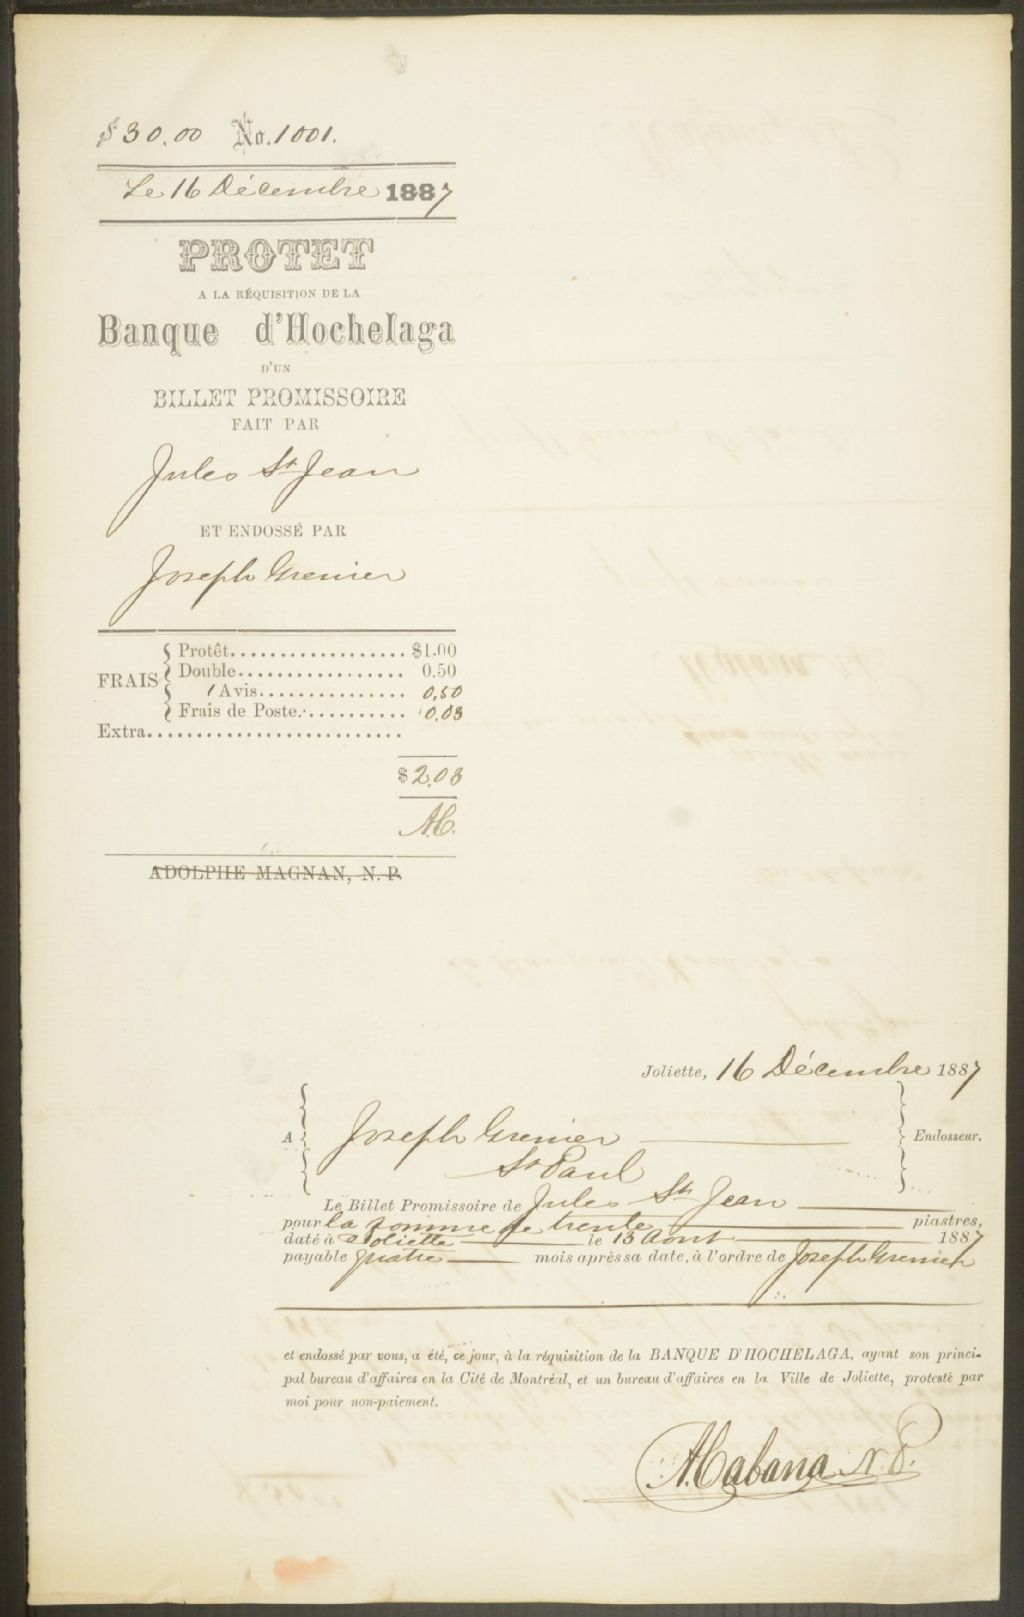 $30.00 No. 1001.
Le 16 Décembre 1887
PROTET
A LA RÉQUISITION DE LA
Banque d'Hochelaga
D'UN
BILLET PROMISSOIRE
FAIT PAR
Jules St Jean
ET ENDOSSÉ PAR
Joseph Grenier
Protêt.................. $1.00
Double................. 0.50
FRAIS
1 Avis............... 0.50
Frais de Poste........... 0.08
Extra..........................
$2.08
A.C.
ADOLPHE MAGNAN, N. P.
Joliette, 16 Décembre 1887
A Joseph Grenier Endosseur.
St Paul
Le Billet Promissoire de Jules St Jean
pour la somme de trente piastres,
daté à Joliette le 13 Aout 1887
payable quatre mois après sa date, à l'ordre de Joseph Grenier
et endossé par vous, a été, ce jour, à la réquisition de la BANQUE D'HOCHELAGA, ayant son princi-
pal bureau d'affaires en la Cité de Montréal, et un bureau d'affaires en la Ville de Joliette, protesté par
moi pour non-paiement.
A. Cabana N. P.